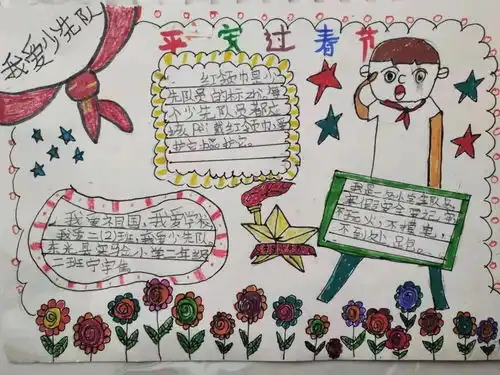 我爱少先队
平安过春节
红领巾是少
先队员的标志,每
个少先队员都应
该佩戴红领巾,要
爱护它。
我爱祖国,我爱学校
我爱二(2)班,我爱少先队
实验小学二年级
二班宁
我是一名少先队员
寒假安全要牢
不玩火,不摸电,
不到处